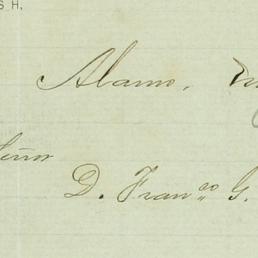 S H.
Alamo,
Señor
D. Franco G.